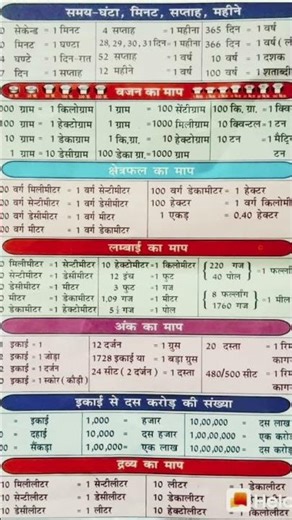 समय-घंटा, मिनट, सप्ताह, महीने
0 सेकेन्ड = 1 मिनट 4 सप्ताह = 1 महीना 365 दिन = 1 वर्ष
0 मिनट = 1 घण्टा 28, 29, 30, 31 दिन = 1 महीना 366 दिन = 1 वर्ष
4 घण्टे = 1 दिन-रात 52 सप्ताह = 1 वर्ष 10 वर्ष = 1 दशक
7 दिन = 1 सप्ताह 12 महीने = 1 वर्ष 100 वर्ष = 1 शताब्दी
वजन का माप
000 ग्राम = 1 किलोग्राम 1 ग्राम = 100 सेंटीग्राम 100 कि.ग्रा. = 1
100 ग्राम = 1 हेक्टोग्राम 1 ग्राम = 1000 मिलीग्राम 10 क्विन्टल = 1 टन
10 ग्राम = 1 डेकाग्राम 1 कि.ग्रा. = 10 हेक्टोग्राम 10 टन = 1
1 ग्राम = 10 डेसीग्राम 100 डेका ग्रा. = 1000 ग्राम टन
क्षेत्रफल का माप
00 वर्ग मिलीमीटर = 1 वर्ग सेन्टीमीटर 100 वर्ग डेकामीटर = 1 हेक्टर
00 वर्ग सेन्टीमीटर = 1 वर्ग डेसीमीटर 100 हेक्टर = 1 वर्ग
00 वर्ग डेसीमीटर = 1 वर्ग मीटर 1 एकड़ = 0.40 हेक्टर
00 वर्ग मीटर = 1 वर्ग डेकामीटर
लम्बाई का माप
0 मिलीमीटर = 1 सेन्टीमीटर 10 हेक्टोमीटर = 1 किलोमीटर 220 गज
0 सेन्टीमीटर = 1 डेसीमीटर 12 इंच = 1 फुट 40 पोल = 1
0 डेसीमीटर = 1 मीटर 3 फुट = 1 गज
0 मीटर = 1 डेकामीटर 1.09 गज = 1 मीटर 8 फर्लांग
0 डेकामीटर = 1 हेक्टोमीटर 5½ गज = 1 पोल 1760 गज = 1 मील
अंक का माप
इकाई = 1 12 दर्जन = 1 ग्रुस 20 दस्ता = 1
इकाई = 1 जोड़ा 1728 इकाई या = 1 बड़ा ग्रुस
इकाई = 1 दर्जन 24 सीट ( 2 दर्जन ) = 1 दस्ता 480/500 सीट = 1
इकाई = 1 स्कोर (कौड़ी)
इकाई से दस करोड़ की संख्या
= इकाई 1,000 = हजार 10,00,000 = दस लाख
0 = दहाई 10,000 = दस हजार 1,00,00,000 = एक करोड़
00 = सैंकड़ा 1,00,000 = एक लाख 10,00,00,000 = दस करोड़
द्रव्य का माप
10 मिलीलीटर = 1 सेन्टीलीटर 10 लीटर = 1 डेकालीटर
10 सेन्टीलीटर = 1 डेसीलीटर 10 डेकालीटर
10 डेसीलीटर = 1 लीटर 10 हेक्टोलीटर = 1 किलोलीटर